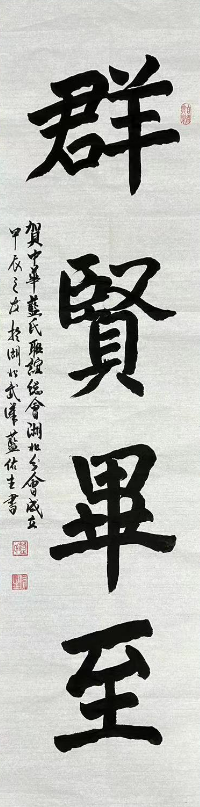 群賢畢至
賀中華藍氏聯誼總會湖北分會成立
甲辰之友於湖北武漢藍佑生書